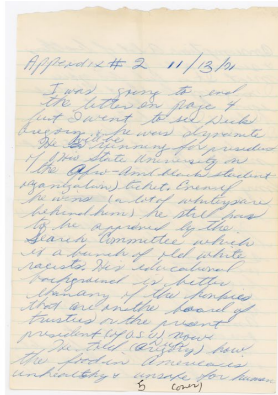 Appendes # 2 11/13/71
I was going to end
the letter on page 4
but I went to see Dick
Gregory & he was dynamite
He is running for president
of Ohio State University on
the Afro-Am (black student
organization) ticket. Even if
he wins (a lot of whitey are
behind him) he still has
to be approved by the
Search Committee which
is a bunch of old white
racists. His educational
background is better
than any of the honkies
that are on the board of
trustees or the present
president of O.S.U. now
He told (Gregory) how
the food in America is
unhealthy & unsafe for human
5 (over)